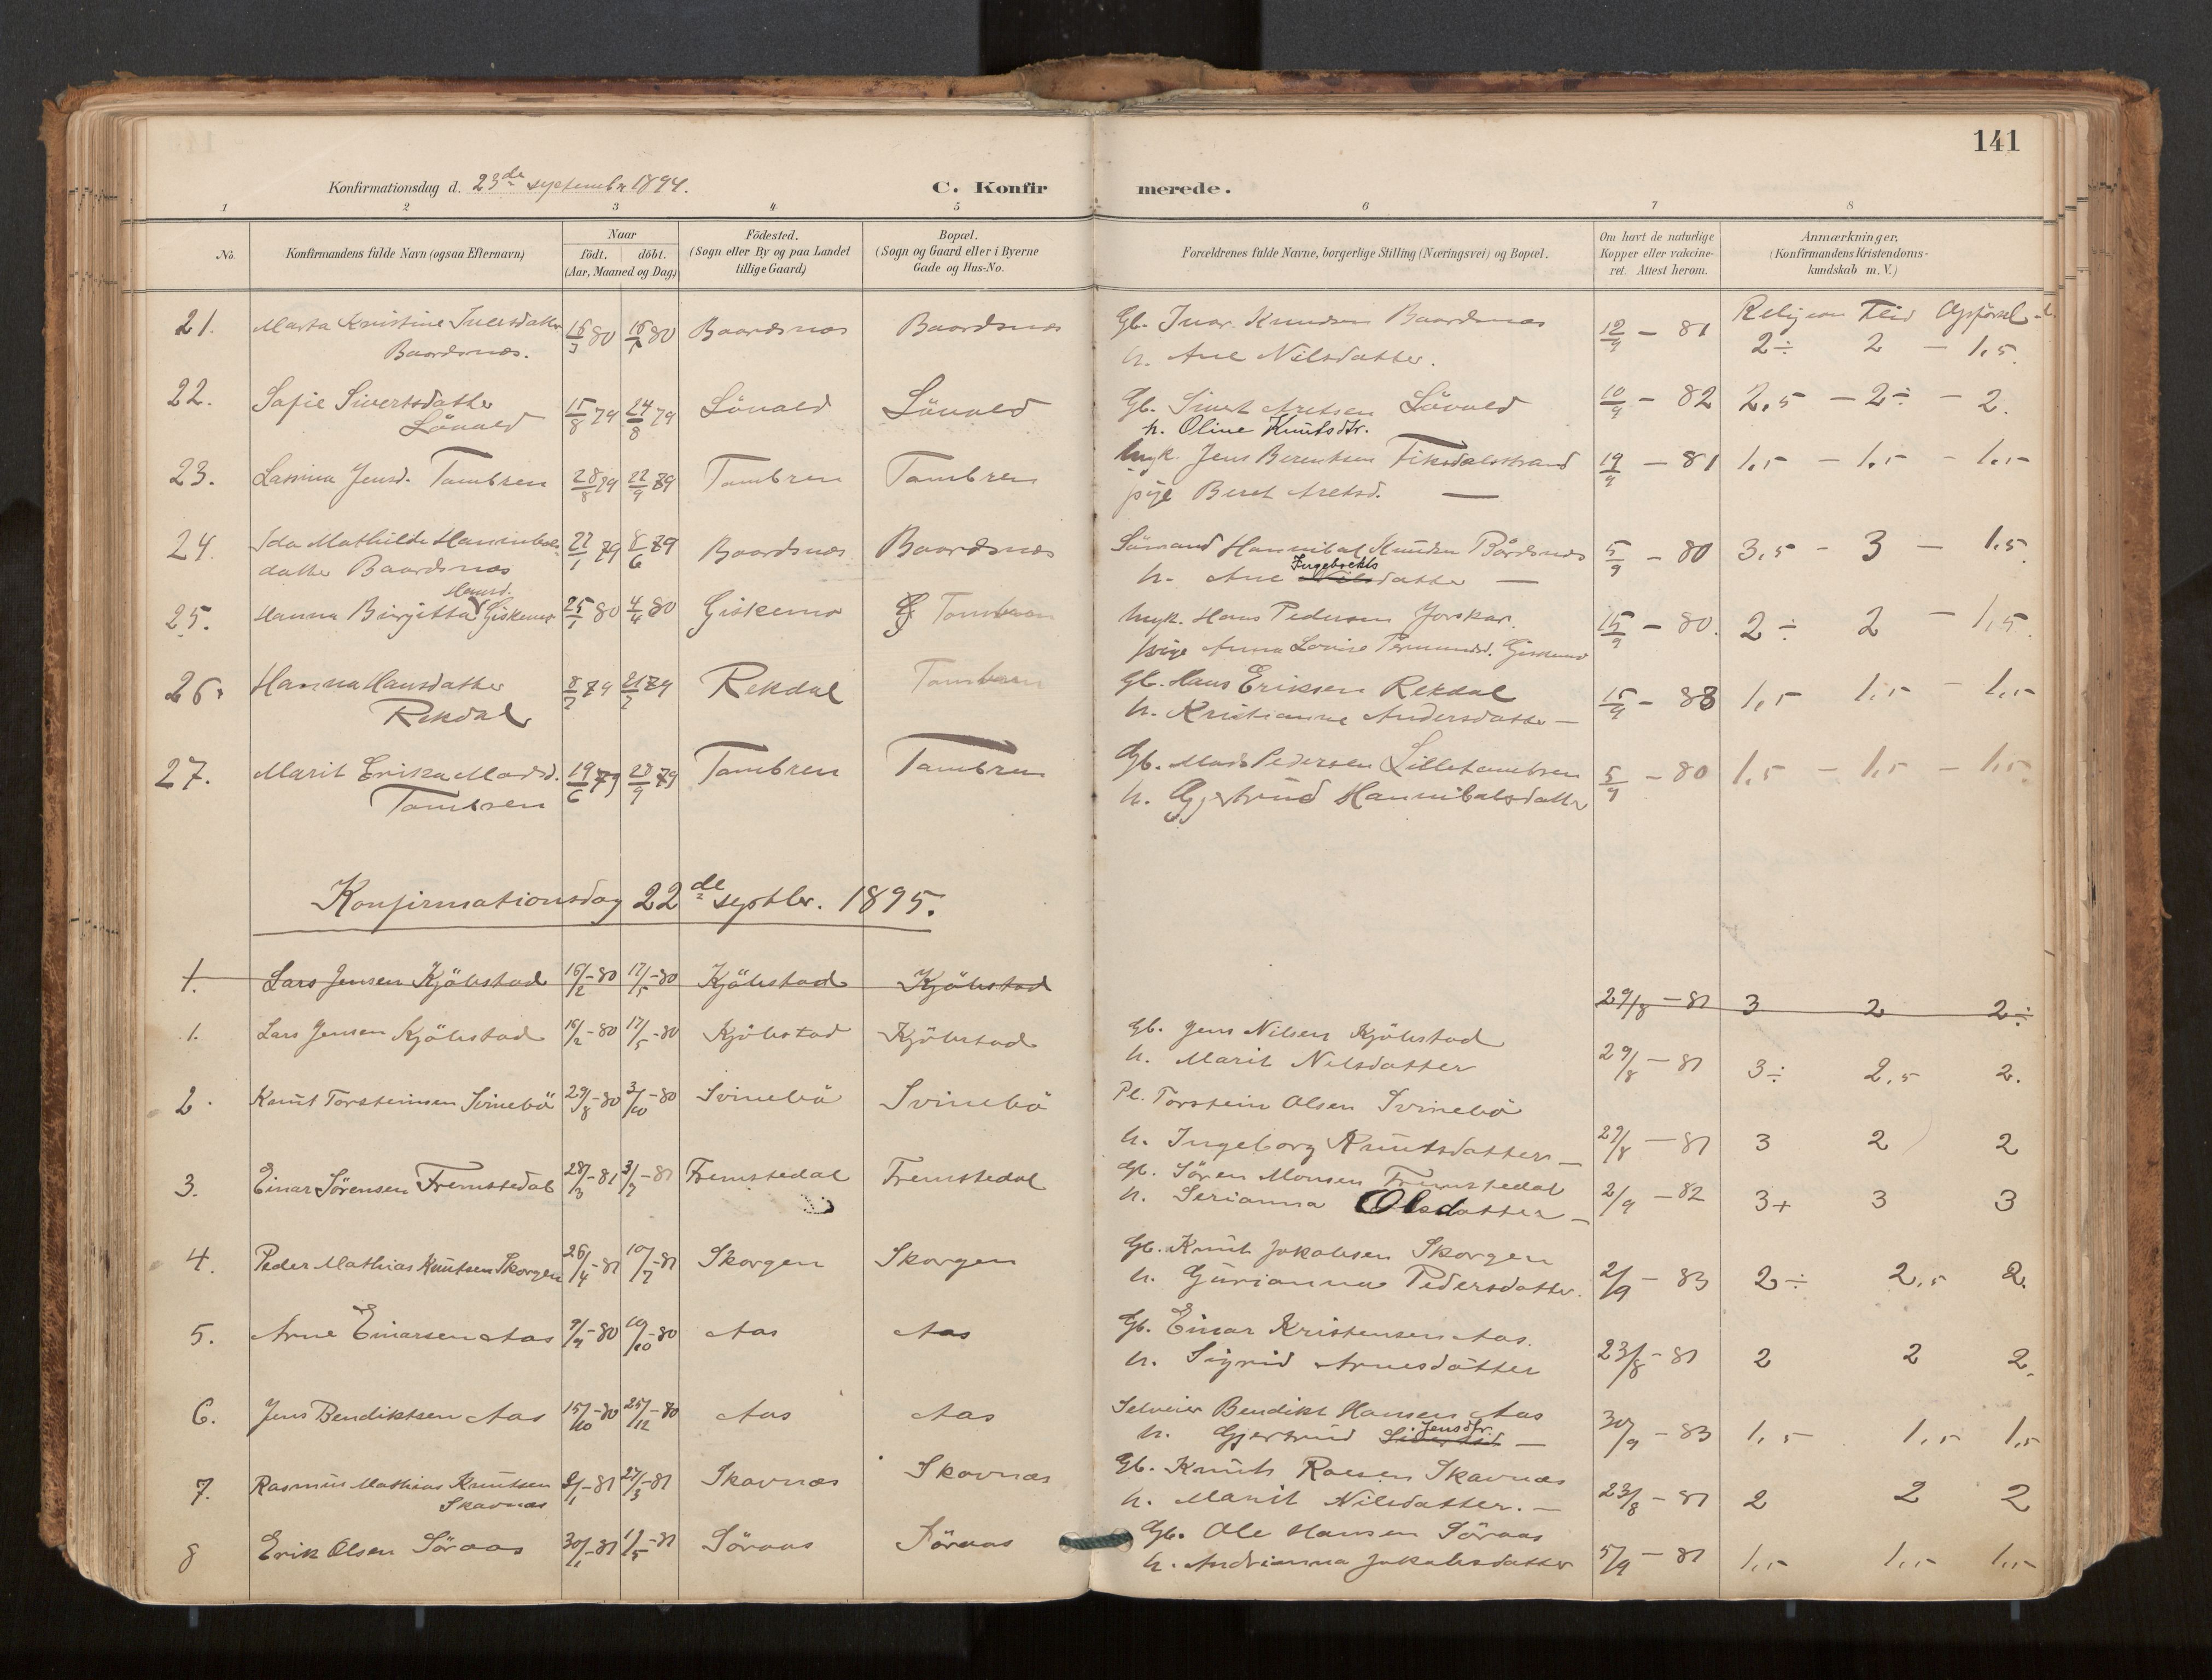 141
Konfirmationsdag d. 23de september 1894.
C. Konfirmerede.
1 2 3 4 5 6 7 8
No.
Konfirmandens fulde Navn (ogsaa Efternavn)
Naar
födt. döbt.
(Aar, Maaned og Dag)
Födested.
(Sogn eller By og paa Landet
tillige Gaard)
Bopæl.
(Sogn og Gaard eller i Byerne
Gade og Hus-No.
Forældrenes fulde Navne, borgerlige Stilling (Næringsvei) og Bopæl.
Om havt de naturlige
Kopper eller vakcine-
ret. Attest herom.
Anmærkninger,
(Konfirmandens Kristendoms-
kundskab m. V.)
Religion Flid Opförsel
21. Marta Kristine Iversdatter 80 80 Baardsnes Baardsnes Gb. Ivar Knudsen Baardsnes 12/9 - 81 2÷ 2 - 1,5.
Baardsnes. h. Ane Nilsdatter.
22. Sofie Sivertsdatter 15/8 79 24/8 79 Lövold Lövold Gb. Sivert Aretsen Lövold 10/9 - 82 2,5 - 2÷ - 2.
Lövold h. Oline Knutsdtr.
23. Lassina Jensd. Tambren 28/8 79 22/9 79 Tambren Tambren Ungk. Jens Berentsen Fiksdalsstrand 19/9 - 81 1,5 - 1,5 - 1,5
pige Beret Aretsd. —
24. Ida Mathilde Hannibals- 22/1 79 8/6 79 Baardsnes Baardsnes Sömand Hannibal Knudsen Bårdsnes 5/9 - 80 3,5 - 3 - 1,5
datter Baardsnes h. Ane Ingebrekts Nilsdatter —
Hansd.
25. Hanna Birgitta Giskemo 25/1 80 4/4 80 Giskemo Tambren Ungk. Hans Pedersen 15/9 - 80. 2÷ 2 - 1,5
pige Anna Lovise Giskemo
26. Hanna Hansdatter 8/2 79 79 Rekdal Tambren Gb. Hans Eriksen Rekdal 15/9 - 83 1,5 1,5 - 1,5
Rekdal h. Kristianne Andersdatter —
27. Marit Erika Madsd. 19/6 79 28/9 79 Tambren Tambren Gb. Mads Pedersen Lilletambren 5/9 - 80 1,5 - 1,5 - 1,5
Tambren h. Gjertrud Hannibalsdatter
Konfirmationsdag 22de septbr. 1895.
1. Lars Jensen Kjölstad 16/2 - 80 17/5 - 80 Kjölstad Kjölstad 29/8 - 81 3 2 2÷
1. Lars Jensen Kjölstad 16/2 - 80 17/5 - 80 Kjölstad Kjölstad Gb. Jens Nilsen Kjölstad
h. Marit Nilsdatter 29/8 - 81 3÷ 2,5 2.
2. Knut Torsteinsen Svinebö 29/8 - 80 3/10 - 80 Svinebö Svinebö Pl. Torstein Olsen Svinebö
h. Ingeborg Knutsdatter — 29/8 - 81 3 2 2
3. Einar Sörensen Fremstedal 28/3 - 81 3/7 - 81 Fremstedal Fremstedal Gb. Sören Monsen Fremstedal
h. Serianna Olsdatter — 2/9 - 82 3+ 3 3
4. Peder Mathias Knutsen Skorgen 26/4 - 81 10/7 - 81 Skorgen Skorgen Gb. Knut Jakobsen Skorgen
h. Gurianna Pedersdatter. 2/9 - 83 2÷ 2,5 2.
5. Arne Einarsen Aas 9/9 - 80 10/10 - 80 Aas Aas Gb. Einar Kristensen Aas.
h. Sigrid Arnesdatter 23/8 - 81 2 2 2.
6. Jens Bendiktsen Aas 15/10 - 80 25/12 - 80 Aas Aas Selveier Bendikt Hansen Aas
h. Gjertrud Jensdtr. — 30/9 - 83 1,5 1,5 1,5
7. Rasmus Mathias Knutsen 2/1 - 81 27/3 - 81 Skavnes Skovnæs Gb. Knut Roesen Skavnæs
Skavnæs h. Marit Nilsdatter. — 23/8 - 81 2 2 2
8 Erik Olsen Söraas 30/1 - 81 1/5 - 81 Söraas Söraas Gb. Ole Hansen Söraas
h. Andrianna Jakobsdatter 5/9 - 81 1,5 1,5 1,5